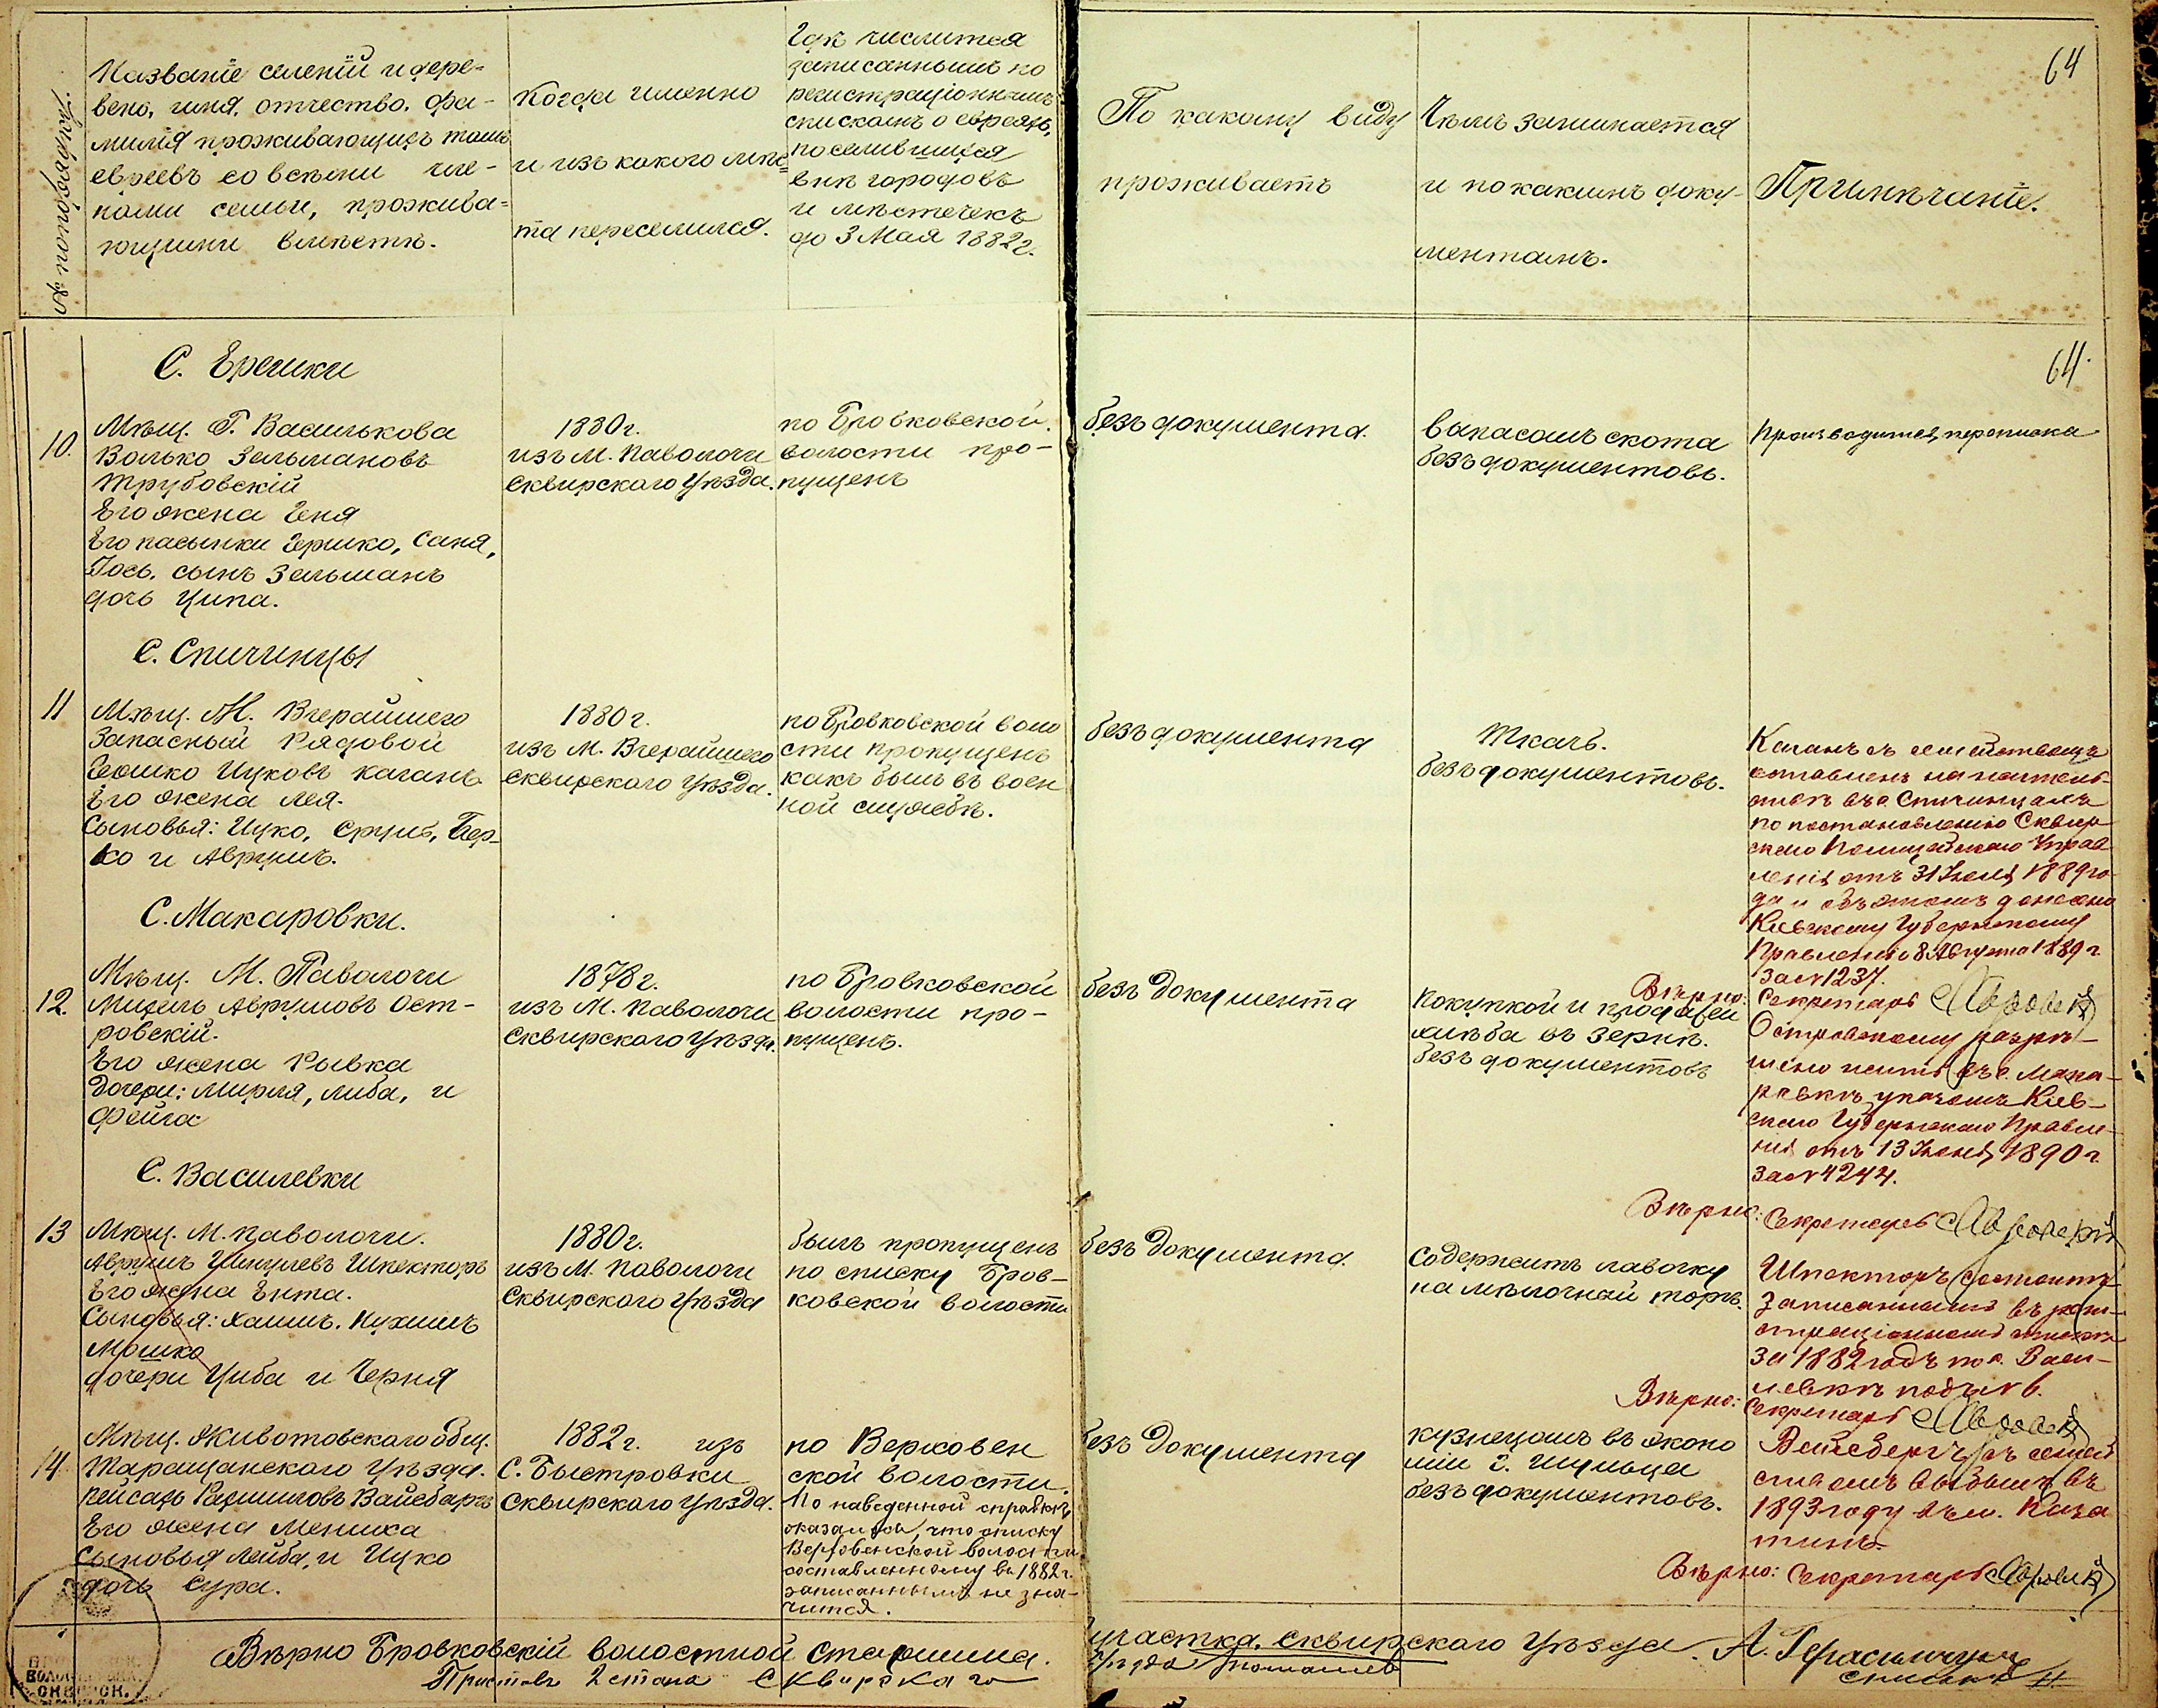 № по порядку.
Названіе селеній и дере-
вень, имя, отчество, фа-
милія проживающихъ тамъ
евреевъ со всѣми чле-
нами семьи, прожива-
ющими вмѣстѣ.
Когда именно
и изъ какого мѣс-
та переселился.
Гдѣ числится
записаннымъ по
регистраціоннымъ
спискамъ о евреяхъ,
поселившихся
внѣ городовъ
и мѣстечекъ
до 3 Мая 1882 г.
По какому виду
проживаетъ
Чѣмъ занимается
и по какимъ доку-
ментамъ.
Примѣчаніе.
64
64.
С. Ерешки
10.
Мѣщ. Г. Василькова
Волько Зельмановъ
Трубовскій
Его жена Геня
Его пасынки Гершко, Саня,
Іось. сынъ Зельманъ
дочь Ципа.
1880 г.
изъ М. Паволочи
Сквирскаго Уѣзда.
по Бровковской
волости про-
пущенъ
безъ документа.
выпасомъ скота
безъ документовъ.
Производится переписка
С. Спичинцы
11
Мѣщ. М. Вчерайшего
Запасный Рядовой
Гершко Ицковъ Каганъ
Его жена Лея.
Сыновья: Ицко, Сруль, Бер-
ко и Аврумъ.
1880 г.
изъ М. Вчерайшего
Сквирскаго Уѣзда.
по Бровковской воло
сти пропущенъ
какъ былъ въ воен
ной службѣ.
безъ документа
Ткачъ.
безъ документовъ.
Каганъ съ семействомъ
оставленъ на житель-
ствѣ въ с. Спичинцахъ
по постановленію Сквир
скаго Полицейскаго Управ
ленія отъ 31 Іюля 1889 го-
да и объ этомъ донесено
Кіевскому Губернскому
Правленію 8 Августа 1889 г.
за № 1237.
Вѣрно: Секретарь
С. Макаровки.
12.
Мѣщ. М. Паволочи
Михель Аврумовъ Ост-
ровскій.
Его жена Рывка
Дочери: Мирля, Либа, и
Фейга
1878 г.
изъ М. Паволочи
Сквирскаго Уѣзда.
по Бровковской
волости про-
пущенъ.
безъ документа
Покупкой и продажей
хлѣба въ зернѣ.
безъ документовъ
Островскому разрѣ-
шено жить въ с. Мака-
ровкѣ указомъ Кіев-
скаго Губернскаго Правле-
нія отъ 13 Іюня 1890 г.
за № 4244.
Вѣрно: Секретарь
С. Василевки
13
Мѣщ. М. Паволочи.
Аврумъ Шмулевъ Шпекторъ
Его жена Ента.
Сыновья: Хаимъ, Нухимъ
Мошко
дочери Циба и Черня
1880 г.
изъ М. Паволочи
Сквирскаго Уѣзда
былъ пропущенъ
по списку Бров-
ковской волости
безъ документа.
Содержитъ лавочку
на мѣлочной торгъ.
Шпекторъ состоитъ
записаннымъ въ реги-
страціонномъ спискѣ
за 1882 годъ по с. Васи-
левкѣ подъ № 6.
Вѣрно: Секретарь
14.
Мѣщ. Животовскаго общ.
Таращанскаго Уѣзда.
Пейсахъ Вайсбергъ
Его жена Мениха
Сыновья Лейба, и Ицко
дочь Сура.
1882 г. изъ
С. Быстровки
Сквирскаго Уѣзда.
по Верховен
ской волости.
По наведенной справкѣ
оказалось, что списку
Верховенской волости
составленному въ 1882 г.
записаннымъ не зна-
чится.
безъ документа
кузнецомъ въ эконо
міи г. Шульца
безъ документовъ.
Вайсбергъ съ семей
ствомъ выбылъ въ
1893 году въ м. Каза
тинъ.
Вѣрно: Секретарь
Вѣрно Бровковскій волостной Старшина.
Приставъ 2 стана Сквирскаго
участка, Сквирскаго Уѣзда. А. Герасимчукъ
Уѣзда